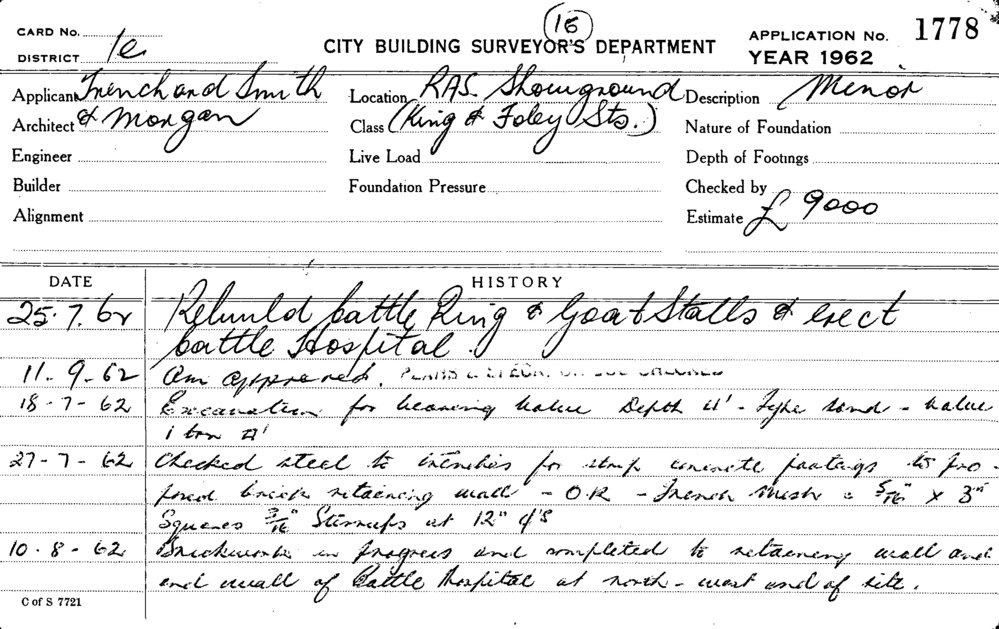 CARD No.
DISTRICT 1e
16
CITY BUILDING SURVEYOR'S DEPARTMENT
APPLICATION No. 1778
YEAR 1962
Applicant Trenchard Smith
Architect & Morgan
Engineer
Builder
Alignment
Location RAS. Showground
Class (King & Foley Sts.)
Live Load
Foundation Pressure
Description Minor
Nature of Foundation
Depth of Footings
Checked by
Estimate £ 9000
DATE HISTORY
25.7.62 Rebuild Cattle Ring & Goat Stalls & erect
Cattle Hospital.
11-9-62 approved. PLANS &
18-7-62 Excavation for bearing value Depth 4' - Type sand - value
1 ton □'
27-7-62 Checked steel to trenches for strip concrete footings to pro-
posed brick retaining wall - O.K - Trench Mesh = 5/16" x 3"
Squares 3/16" Stirrups at 12" c/s
10-8-62 Brickwork in progress and completed to retaining wall and
end wall of Cattle Hospital at north-west end of site.
C of S 7721